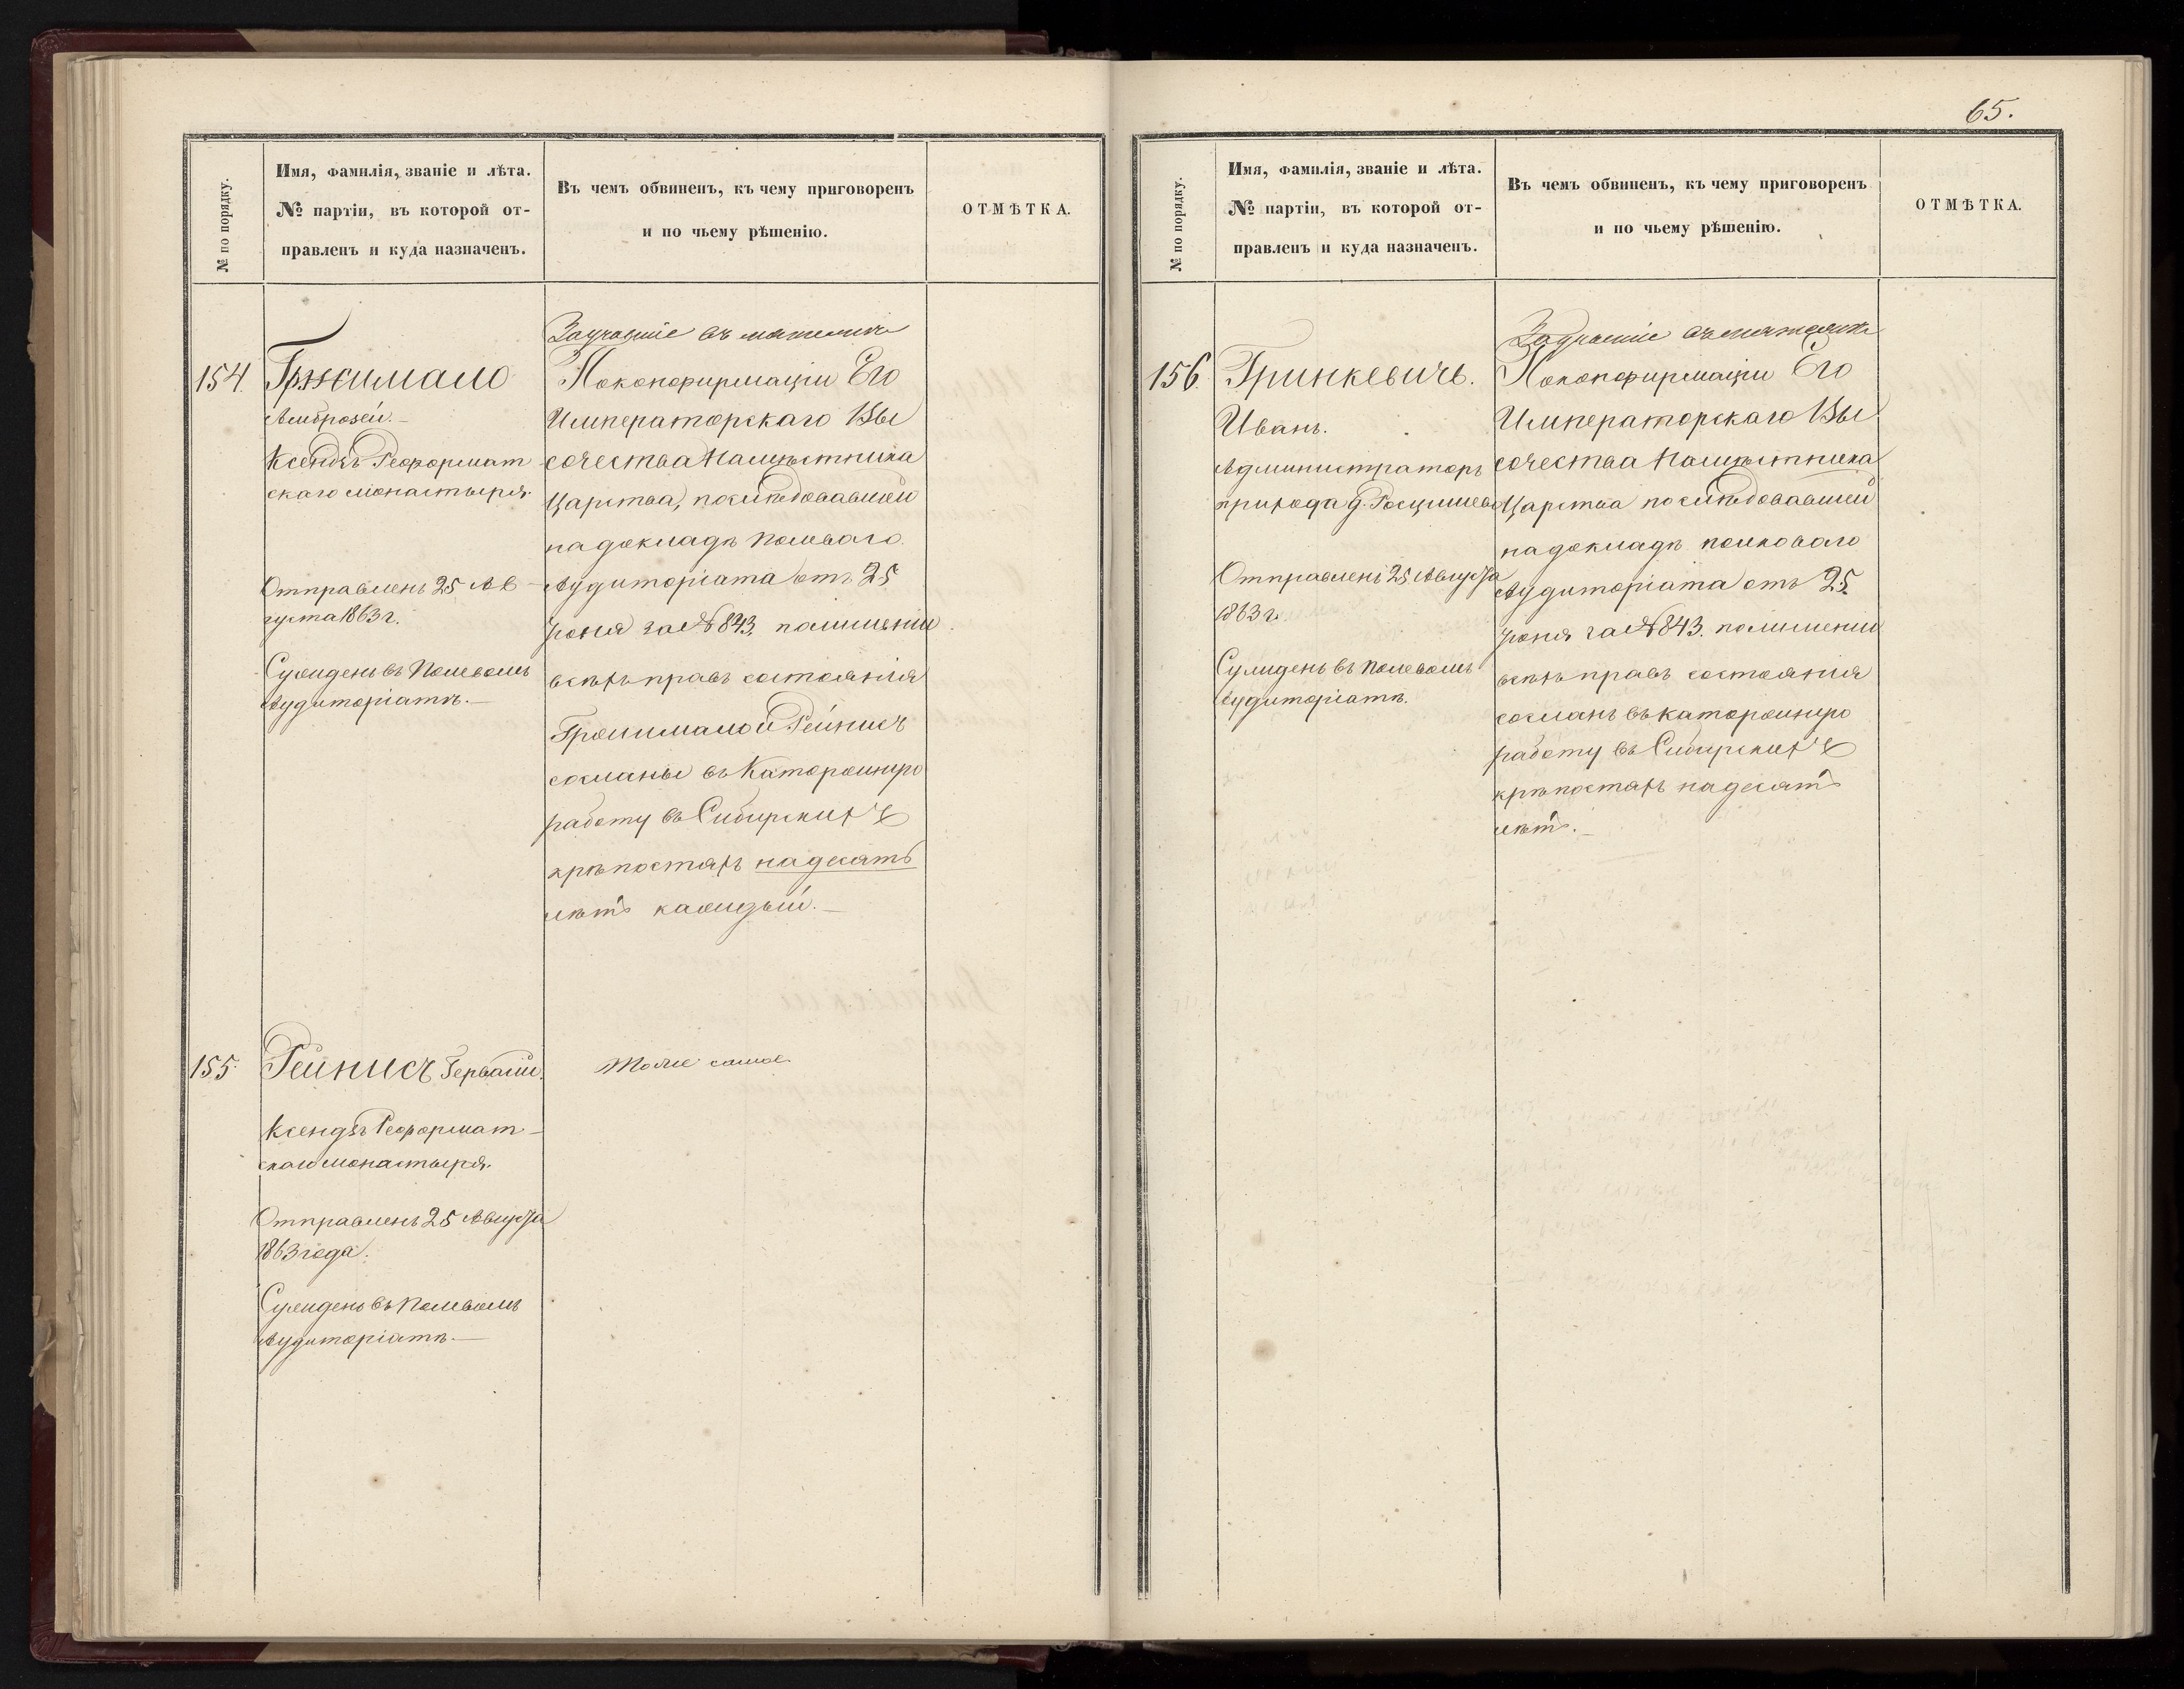 № по порядку.
Имя, фамилія, званіе и лѣта.
№ партіи, въ которой от-
правленъ и куда назначенъ.
Въ чемъ обвиненъ, къ чему приговоренъ
и по чьему рѣшенію.
ОТМѢТКА.
154.
Гржимало
Амброзей.—
Ксендзъ Реформат
скаго монастыря.
Отправленъ 25 Ав-
густа 1863 г.
Сужденъ въ Полевомъ
Аудиторіатѣ.—
За участіе въ мятежѣ
По конфирмаціи Его
Императорскаго Вы
сочества Намѣстника
Царства, послѣдовавшей
на докладѣ Полеваго
Аудиторіата отъ 25
Іюня за № 843. по лишеніи
всѣхъ правъ состоянія
Гржимало и Рейнисъ
сосланы въ Каторжную
работу въ Сибирскихъ
крѣпостяхъ на десять
лѣтъ каждый.—
155.
Рейнисъ Гервасій.
Ксендзъ Реформат-
скаго монастыря.
Отправленъ 25 Августа
1863 года.
Сужденъ въ Полевомъ
Аудиторіатѣ.—
Тоже самое.
65.
№ по порядку.
Имя, фамилія, званіе и лѣта.
№ партіи, въ которой от-
правленъ и куда назначенъ.
Въ чемъ обвиненъ, къ чему приговоренъ
и по чьему рѣшенію.
ОТМѢТКА.
156.
Гринкевичъ.
Иванъ.
Администраторъ
прихода д.
Отправленъ 25 Августа
1863 г.
Сужденъ въ Полевомъ
Аудиторіатѣ.
За участіе въ мятежѣ
По конфирмаціи Его
Императорскаго Вы
сочества Намѣстника
Царства послѣдовавшей
на докладѣ полеваго
Аудиторіата отъ 25.
Іюня за № 843. по лишеніи
всѣхъ правъ состоянія
сосланъ въ каторжную
работу въ Сибирскихъ
крѣпостяхъ на десять
лѣтъ.—